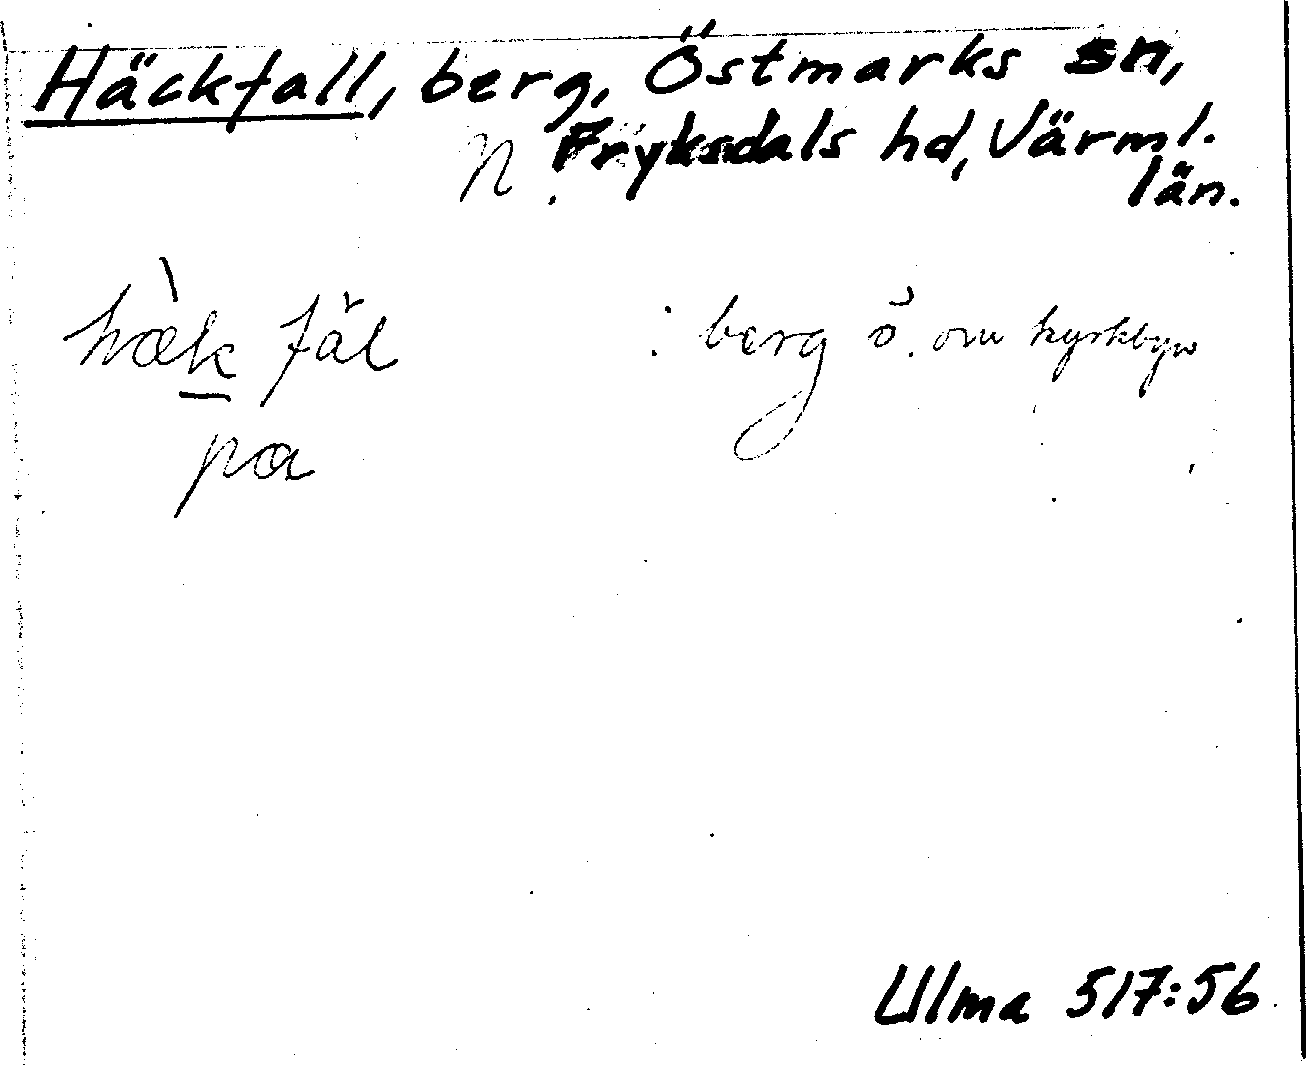 Häckfall, berg, Östmarks sn,
N. Fryksdals hd, Värml.
län.
hæ̀k făl : berg ö. om kyrkbyn
pa
Ulma 517:56